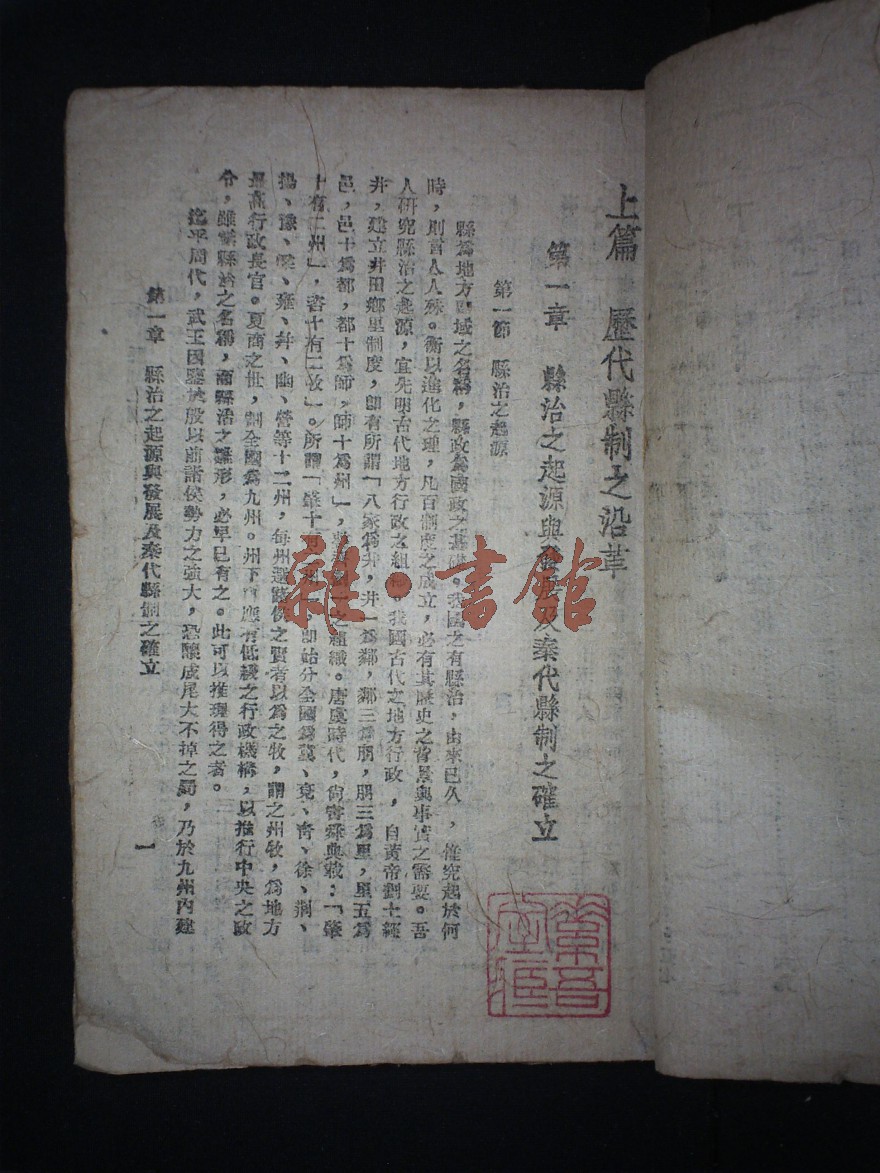 上篇　歷代縣制之沿革
第一章　縣治之起源與發展及秦代縣制之確立
第一節　縣治之起源
縣爲地方區域之名稱，縣政爲國政之基礎。我國之有縣治，由來已久，惟究起於何
時，則言人人殊。衡以進化之理，凡百制度之成立，必有其歷史之背景與事實之需要。吾
人研究縣治之起源，宜先明古代地方行政之組織。我國古代之地方行政，自黃帝劃土經
井，建立井田鄉里制度，卽有所謂「八家爲井，井一爲鄰，鄰三爲朋，朋三爲里，里五爲
邑，邑十爲都，都十爲師，師十爲州」，之組織。唐虞時代，尙書舜典載：「肇
十有二州」，「咨十有二牧」。所謂「肇十有二州」，卽始分全國爲冀、兗、靑、徐、荆、
揚、豫、梁、雍、幷、幽、營等十二州，每州選諸侯之賢者以爲之牧，謂之州牧，爲地方
最高行政長官。夏商之世，劃全國爲九州。州下實應有低級之行政機構，以推行中央之政
令，雖無縣治之名稱，而縣治之雛形，必早已有之。此可以推理得之者。
迨乎周代，武王因鑒於殷以前諸侯勢力之強大，恐釀成尾大不掉之局，乃於九州內建
第一章　縣治之起源與發展及秦代縣制之確立
一
雜·書館